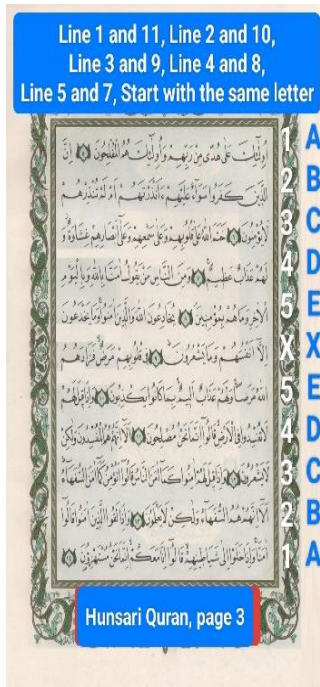 Line 1 and 11, Line 2 and 10,
Line 3 and 9, Line 4 and 8,
Line 5 and 7, Start with the same letter
اُولٰئِكَ عَلٰى هُدًى مِنْ رَبِّهِمْ وَاُولٰئِكَ هُمُ الْمُفْلِحُونَ اِنَّ 1 A
الَّذِينَ كَفَرُوا سَوَاءٌ عَلَيْهِمْ ءَاَنْذَرْتَهُمْ اَمْ لَمْ تُنْذِرْهُمْ 2 B
لَا يُؤْمِنُونَ خَتَمَ اللّٰهُ عَلٰى قُلُوبِهِمْ وَعَلٰى سَمْعِهِمْ وَعَلٰى اَبْصَارِهِمْ غِشَاوَةٌ وَ 3 C
لَهُمْ عَذَابٌ عَظِيمٌ وَمِنَ النَّاسِ مَنْ يَقُولُ اٰمَنَّا بِاللّٰهِ وَبِالْيَوْمِ 4 D
الْاٰخِرِ وَمَا هُمْ بِمُؤْمِنِينَ يُخَادِعُونَ اللّٰهَ وَالَّذِينَ اٰمَنُوا وَمَا يَخْدَعُونَ 5 E
اِلَّا اَنْفُسَهُمْ وَمَا يَشْعُرُونَ فِى قُلُوبِهِمْ مَرَضٌ فَزَادَهُمُ X X
اللّٰهُ مَرَضًا وَلَهُمْ عَذَابٌ اَلِيمٌ بِمَا كَانُوا يَكْذِبُونَ وَاِذَا قِيلَ لَهُمْ 5 E
لَا تُفْسِدُوا فِى الْاَرْضِ قَالُوا اِنَّمَا نَحْنُ مُصْلِحُونَ اَلَا اِنَّهُمْ هُمُ الْمُفْسِدُونَ وَلٰكِنْ 4 D
لَا يَشْعُرُونَ وَاِذَا قِيلَ لَهُمْ اٰمِنُوا كَمَا اٰمَنَ النَّاسُ قَالُوا اَنُؤْمِنُ كَمَا اٰمَنَ السُّفَهَاءُ 3 C
اَلَا اِنَّهُمْ هُمُ السُّفَهَاءُ وَلٰكِنْ لَا يَعْلَمُونَ وَاِذَا لَقُوا الَّذِينَ اٰمَنُوا قَالُوا 2 B
اٰمَنَّا وَاِذَا خَلَوْا اِلٰى شَيَاطِينِهِمْ قَالُوا اِنَّا مَعَكُمْ اِنَّمَا نَحْنُ مُسْتَهْزِؤُنَ 1 A
Hunsari Quran, page 3